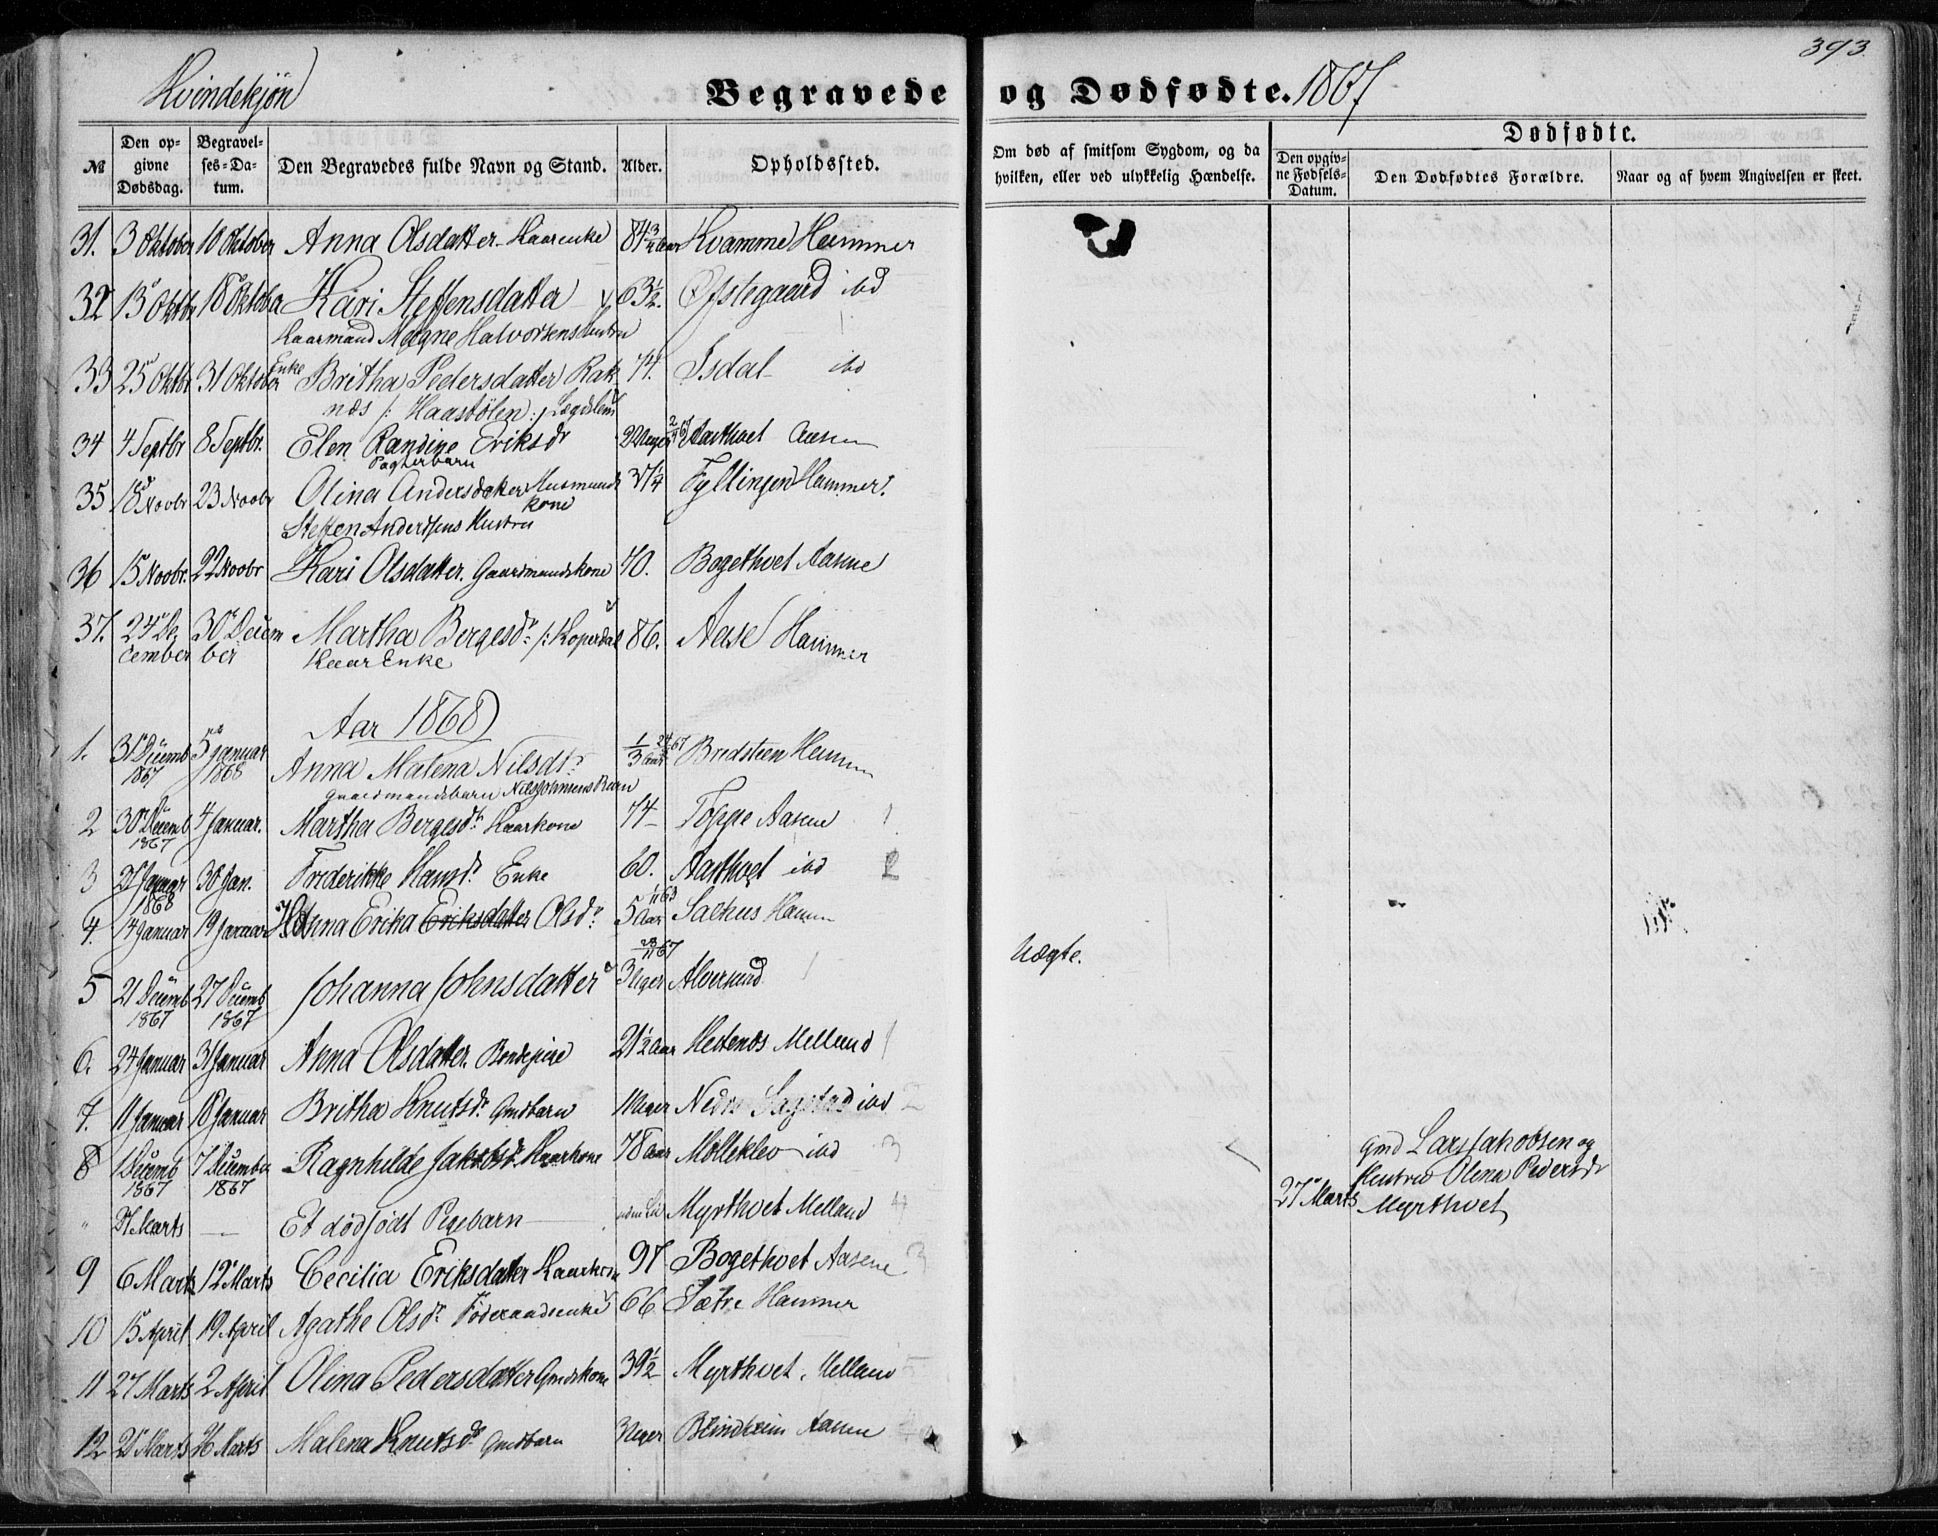 393.
Kvindekjøn
Begravede og Dødfødte. 1867
№
Den opgivne Dødsdag.
Begravelses-Datum.
Den Begravedes fulde Navn og Stand.
Alder.
Opholdssted.
Om død af smitsom Sygdom, og da hvilken, eller ved ulykkelig Hændelse.
Dødfødte.
Den opgivne Fødsels-Datum.
Den Dødfødtes Forældre.
Naar og af hvem Angivelsen er skeet.
31. 3 Oktober 10 Oktober Anna Olsdatter Kaarenke 84 3/4 Aar Kvamme Hammer
32 13 Oktbr 18 Oktober Kari Steffensdatter 63 1/2. Øfstegaard ibd
Kaarmand Mogne Halvorsens Hustru
33 25 Oktbr 31 Oktober Enke Britha Pedersdatter Rak 74. Isdal ibd
næs /: Haastølen :/ Lægdslem
34 4 Septbr 8 Septbr. Elen Randine Eriksdr 2 Uger Aastvet Aasene
Pagterbarn
35 18 Novbr 23 Novbr Olina Andersdatter Husmands 37 1/4 Fyllingen Hammer.
kone
Steffen Anderssens Hustru
36 15 Novbr. 22 Novbr Kari Olsdatter. Gaardmandskone 40. Bogethvet Aasene
37. 24 De 30 Decem Martha Bergesdr /: Koperdal 86. Aase Hammer
cember ber Kaar Enke
Aar 1868
1. 31 Decemb 5 Januar Anna Malena Nilsdr 1/3 Aar Bredsteen Hammer
1867 1868 Gaardmandsbarn Nils Johnsens Barn
2 30 Decemb 4 Januar. Martha Bergesdr Kaarkone 74 Toppe Aasene
1867
3 21 Januar 30 Jan. Frederikke Hansdr. Enke 60. Aasthvet ibd
1868
4. 14 Januar 19 Januar Hanna Erika Eriksdatter Olsdr. 5 Aar Salhus Hamm
5 21 Decemb 27 Decemb Johanna Johnsdatter 3 Uger Alversund Uægte.
1867 1867
6. 24 Januar 31 Januar Anna Olsdatter. Bondepige 21 1/2 Aar Hestenes Melland
7. 11 Januar 18 Januar Britha Knutsdr Gmdbarn 11 Uger Nedre Sagstad ibd 2
8 1 Decemb 7 Decembr Ragnhilde Jakobsdr Kaarkone 78 Aar Mölleklev ibd 3
1867 1867
" 27 Marts — Et dödfödt Pigebarn uden Liv Myrthvet Melland 4
27 Marts
Gmd Lars Jakobsen og
Hustru Olena Pedersdr
Myrthvet
9 6 Marts 12 Marts Cecilia Eriksdatter Kaarkone 97 Bogethvet Aasene 3
10 15 April 19 April Agathe Olsdr. Föderaadsenke 66 Sætre Hammer
11 27 Marts 2 April Olina Pedersdatter Gmdskone 39 1/2 Myrthvet. Melland 5
12 21 Marts 26 Marts Malena Knutsdr. Gmdbarn 3 Uger Blindheim Aasene